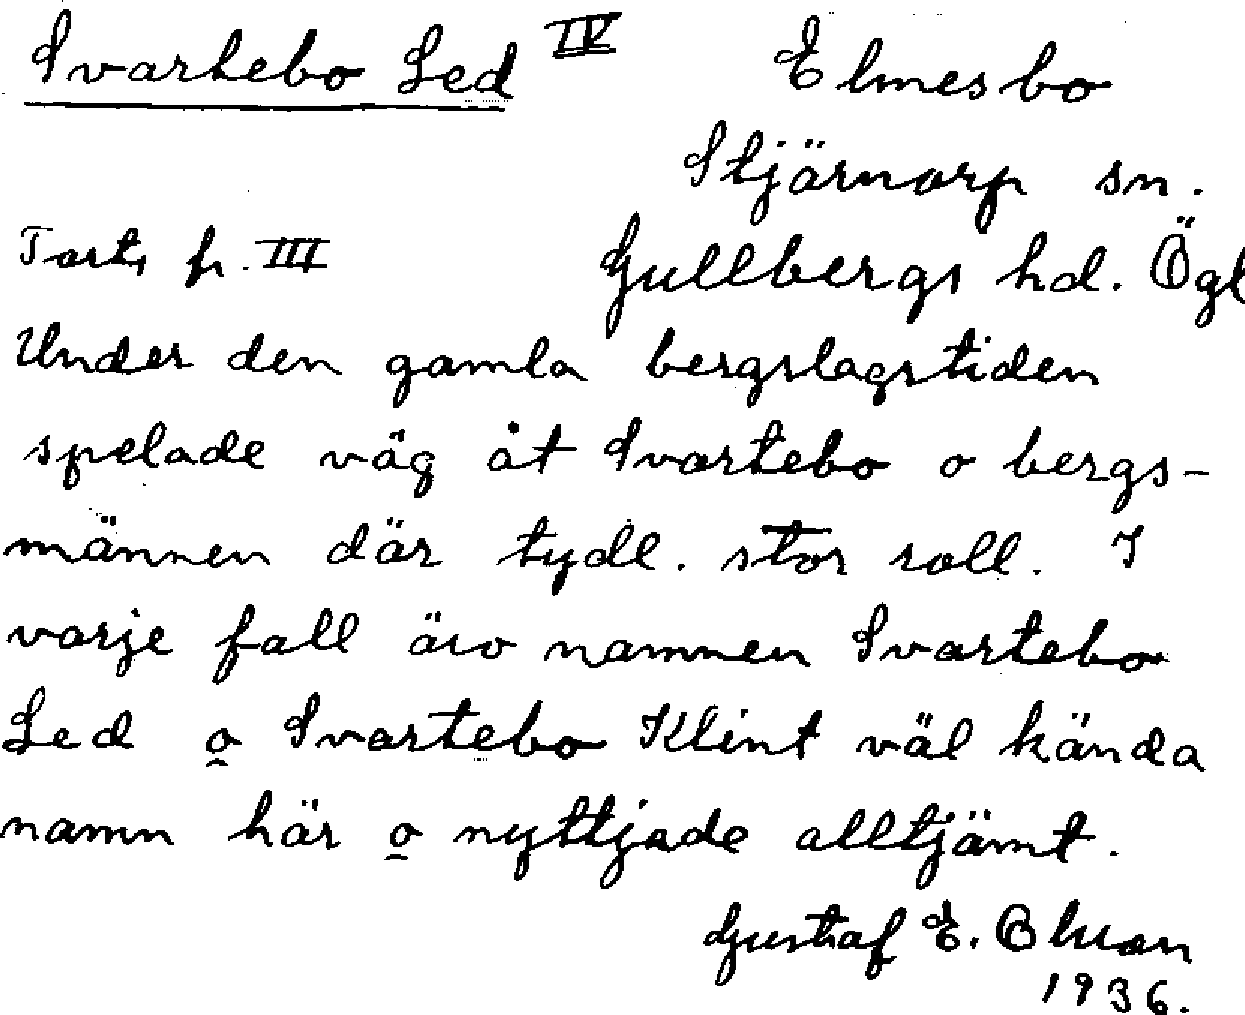 Svartebo Led IV
Elmesbo
Stjärnorp sn.
Forts, fr. III
Gullbergs hd. Ögl
Under den gamla bergslagstiden
spelade väg åt Svartebo o bergs-
männen där tydl. stor roll. I
varje fall äro namnen Svartebo
Led o Svartebo Klint väl kända
namn här o nyttjade alltjämt.
Gustaf E. Ohman
1936.